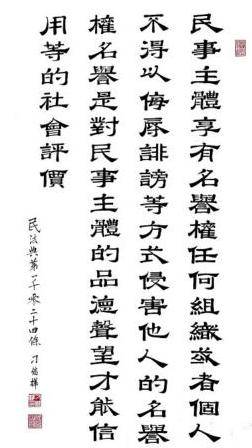 民事主體享有名譽權任何組織或者個人
不得以侮辱誹謗等方式侵害他人的名譽
權名譽是對民事主體的品德聲望才能信
用等的社會評價
民法典第一千零二十四條